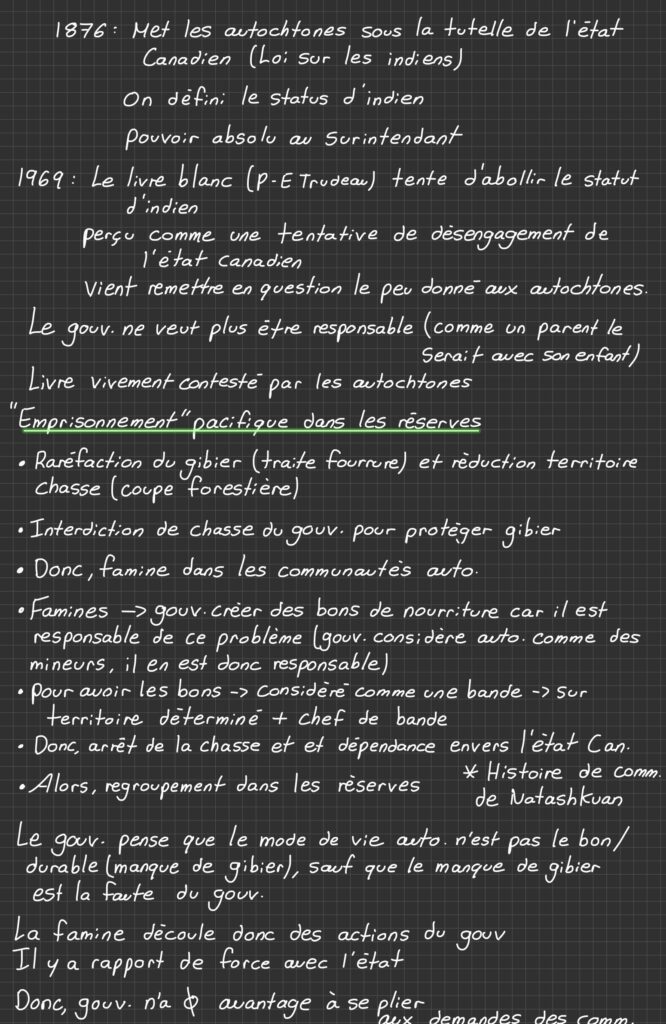 1876: Met les autochtones sous la tutelle de l'état
Canadien (Loi sur les indiens)
On défini le status d'indien
Pouvoir absolu au surintendant
1969: Le livre blanc (P-E Trudeau) tente d'abollir le statut
d'indien
perçu comme une tentative de désengagement de
l'état canadien
Vient remettre en question le peu donné aux autochtones.
Le gouv. ne veut plus être responsable (comme un parent le
serait avec son enfant)
Livre vivement contesté par les autochtones
"Emprisonnement" pacifique dans les réserves
• Raréfaction du gibier (traite fourrure) et réduction territoire
chasse (coupe forestière)
• Interdiction de chasse du gouv. pour protéger gibier
• Donc, famine dans les communautés auto.
• Famines -> gouv. créer des bons de nourriture car il est
responsable de ce problème (gouv. considère auto. comme des
mineurs, il en est donc responsable)
• Pour avoir les bons -> considéré comme une bande -> sur
territoire déterminé + chef de bande
• Donc, arrêt de la chasse et et dépendance envers l'état Can.
• Alors, regroupement dans les réserves
* Histoire de comm.
de Natashkuan
Le gouv. pense que le mode de vie auto. n'est pas le bon/
durable (manque de gibier), sauf que le manque de gibier
est la faute du gouv.
La famine découle donc des actions du gouv
Il y a rapport de force avec l'état
Donc, gouv. n'a ϕ avantage à se plier
aux demandes des comm.